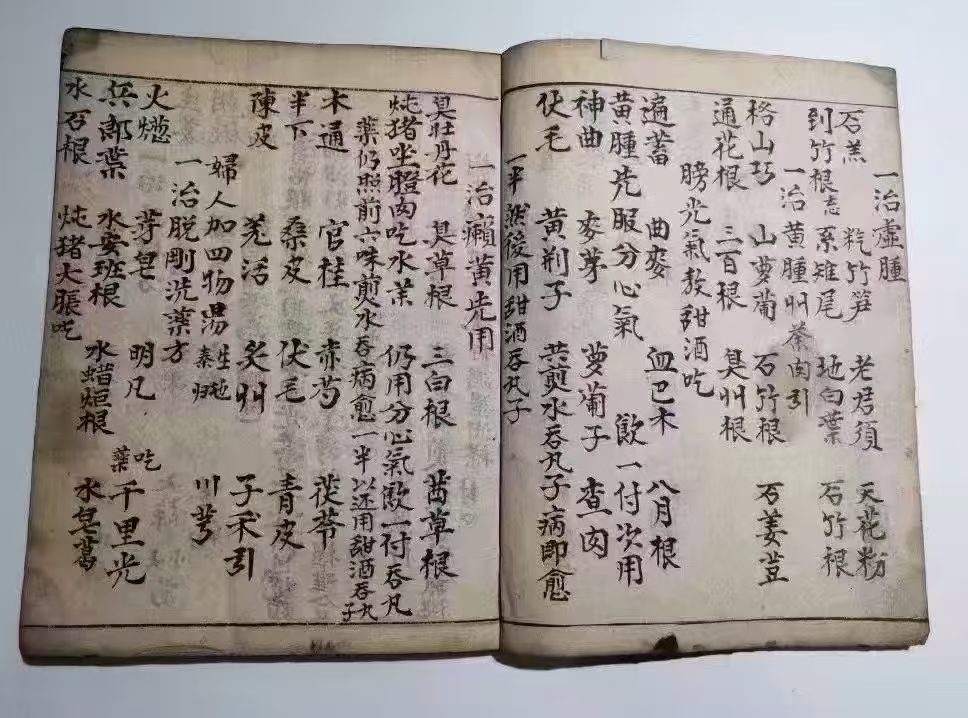 一治虛腫
石羔 籺竹笋 老君須 天花粉
到竹根志 系雉尾 地白葉 石竹根
一治黄腫州 茶肉引
格山巧 山萝葡 石竹根 石姜荳
通花根 三百根 臭州根
膀光氣教甜酒吃
遍蓄 曲麥 血巴木 八月根
黄腫先服分心氣飲一付次用
神曲 麥芽 萝葡子 查肉
伏毛 黄荆子 共煎水吞丸子病即愈
一半然後用甜酒吞丸子
一治癩黄先用
臭牡丹花 臭草根 三白根 茜草根
炖猪坐膛肉吃水葉 仍用分心氣飲一付吞丸
藥仍照前六味煎水吞病愈一半以还用甜酒吞丸子
木通 官桂 赤芍 茯苓
半下 桑皮 伏毛 青皮
陳皮 羌活 炙州 子禾引
婦人加四物湯 生地 秦归 川芎
一治脱剛洗藥方
火葱 芽皂 明凡 吃藥 千里光
兵郎葉 水安班根 水蜡烜根 水皂葛
水石根 炖猪大脹吃